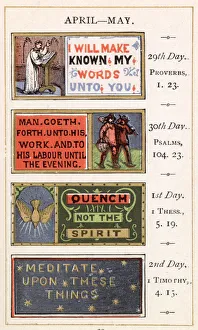 APRIL—MAY.
I WILL MAKE
KNOWN MY
WORDS
UNTO YOU
29th Day.
PROVERBS,
1. 23.
MAN. GOETH.
FORTH. UNTO. HIS,
WORK. AND. TO
HIS LABOUR UNTIL
THE EVENING.
30th Day.
PSALMS,
104. 23.
QUENCH
NOT THE
SPIRIT
1st Day.
1 THESS.,
5. 19.
MEDITATE
UPON THESE
THINGS
2nd Day.
1 TIMOTHY,
4. 15.